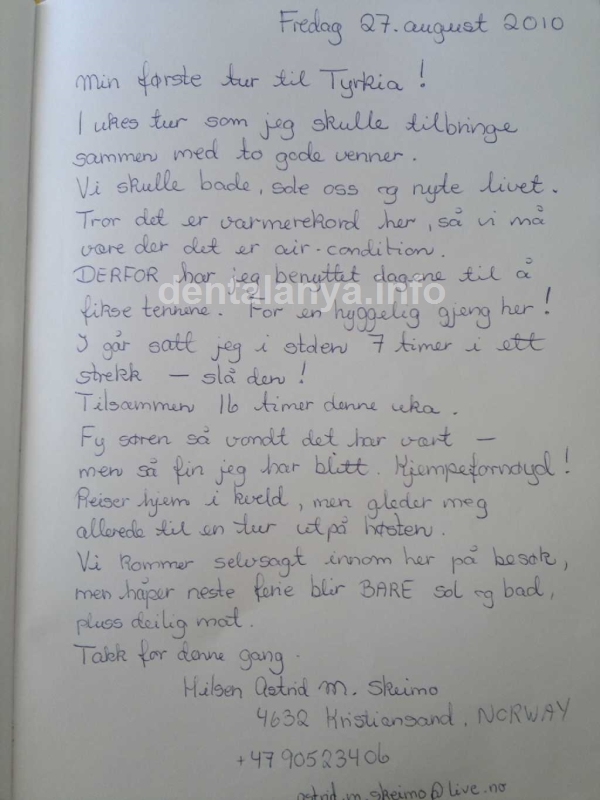 Fredag 27. august 2010
Min første tur til Tyrkia!
1 ukes tur som jeg skulle tilbringe
sammen med to gode venner.
Vi skulle bade, sole oss og nyte livet.
Tror det er varmerekord her, så vi må
være der det er air-condition.
DERFOR har jeg benyttet dagene til å
dentalanya.info
fikse tennene. For en hyggelig gjeng her!
I går satt jeg i stolen 7 timer i ett
strekk – slå den!
Tilsammen 16 timer denne uka.
Fy søren så vondt det har vært –
men så fin jeg har blitt. Kjempefornøyd!
Reiser hjem i kveld, men gleder meg
allerede til en tur utpå høsten.
Vi kommer selvsagt innom her på besøk,
men håper neste ferie blir BARE sol og bad,
pluss deilig mat.
Takk for denne gang.
Hilsen Astrid M. Skeimo
4632 Kristiansand, NORWAY
+47 90523406
astrid.m.skeimo@live.no